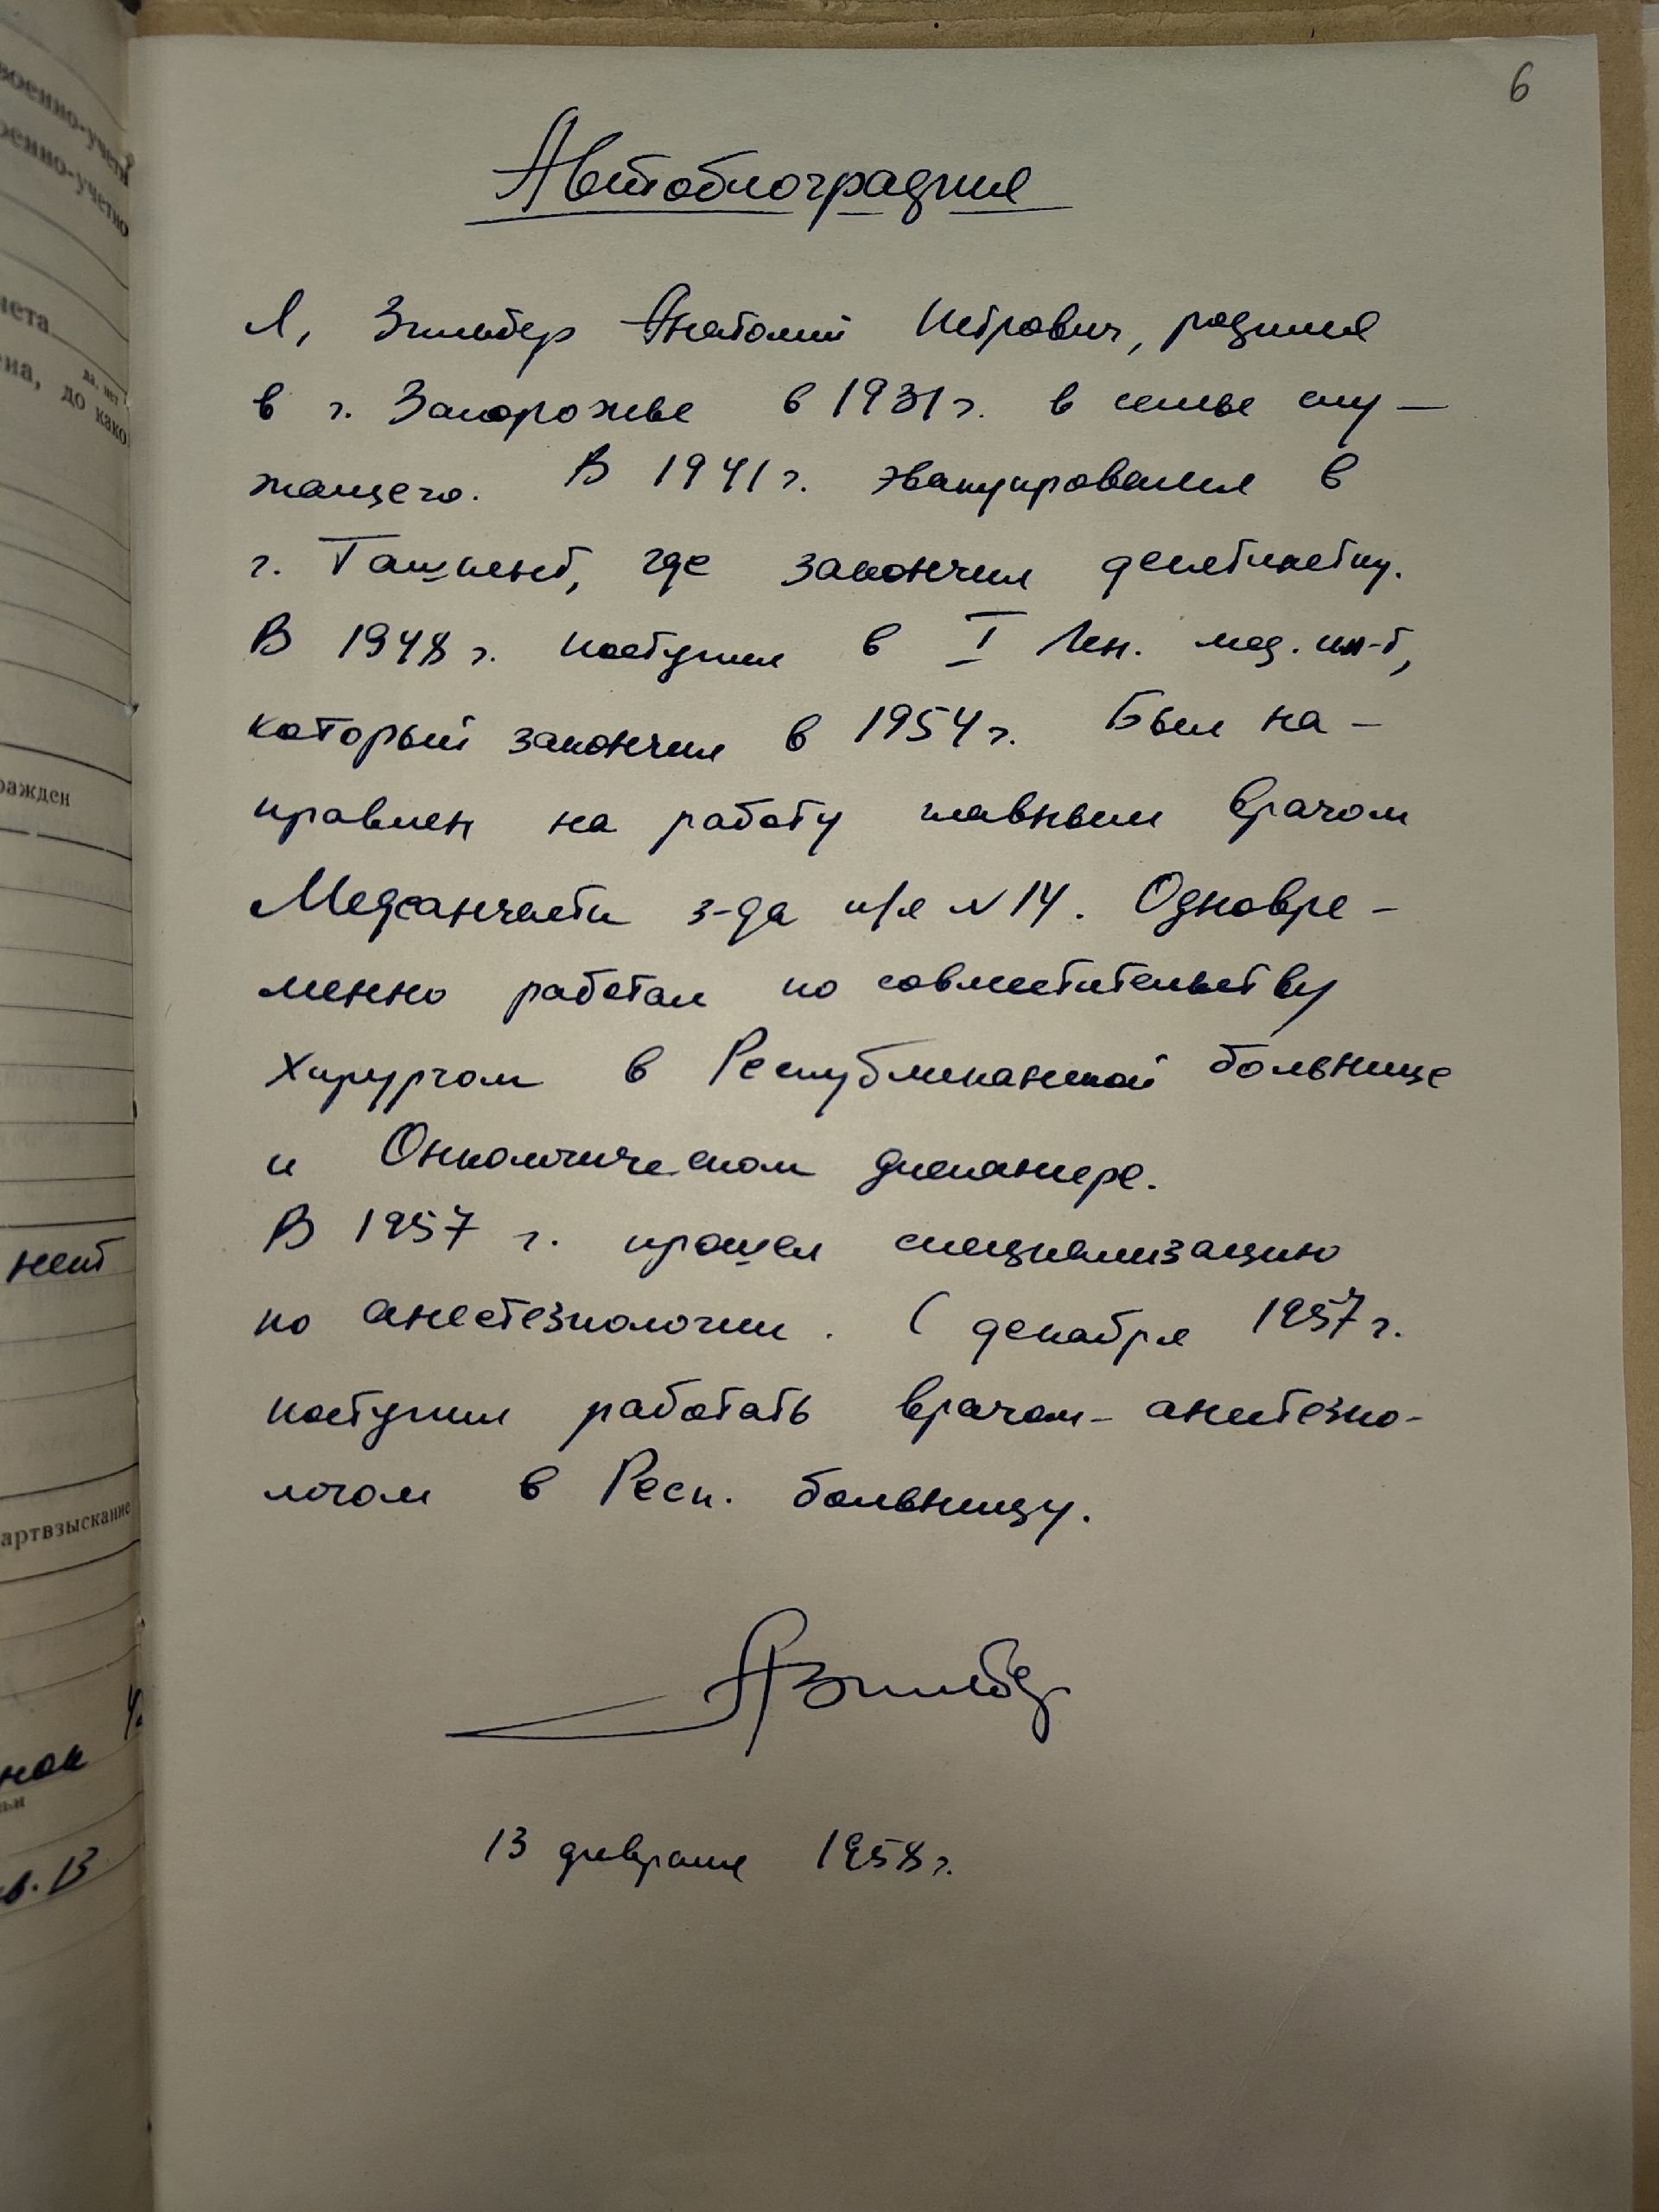 военно-учетн
военно-учетно
чета
да, нет
ена, до како
ражден
нет
артвзыскание
6
Автобиография
Я, Зильбер Анатолий Петрович, родился
в г. Запорожье в 1931 г. в семье слу-
жащего. В 1941 г. эвакуировался в
г. Ташкент, где закончил десятилетку.
В 1948 г. поступил в I Лен. мед. ин-т,
который закончил в 1954 г. Был на-
правлен на работу главным врачом
Медсанчасти з-да п/я N 14. Одновре-
менно работал по совместительству
хирургом в Республиканской больнице
и Онкологическом диспансере.
В 1957 г. прошел специализацию
по анестезиологии. С декабря 1957 г.
поступил работать врачом-анестезио-
логом в Респ. больницу.
АЗильбер
13 февраля 1958 г.